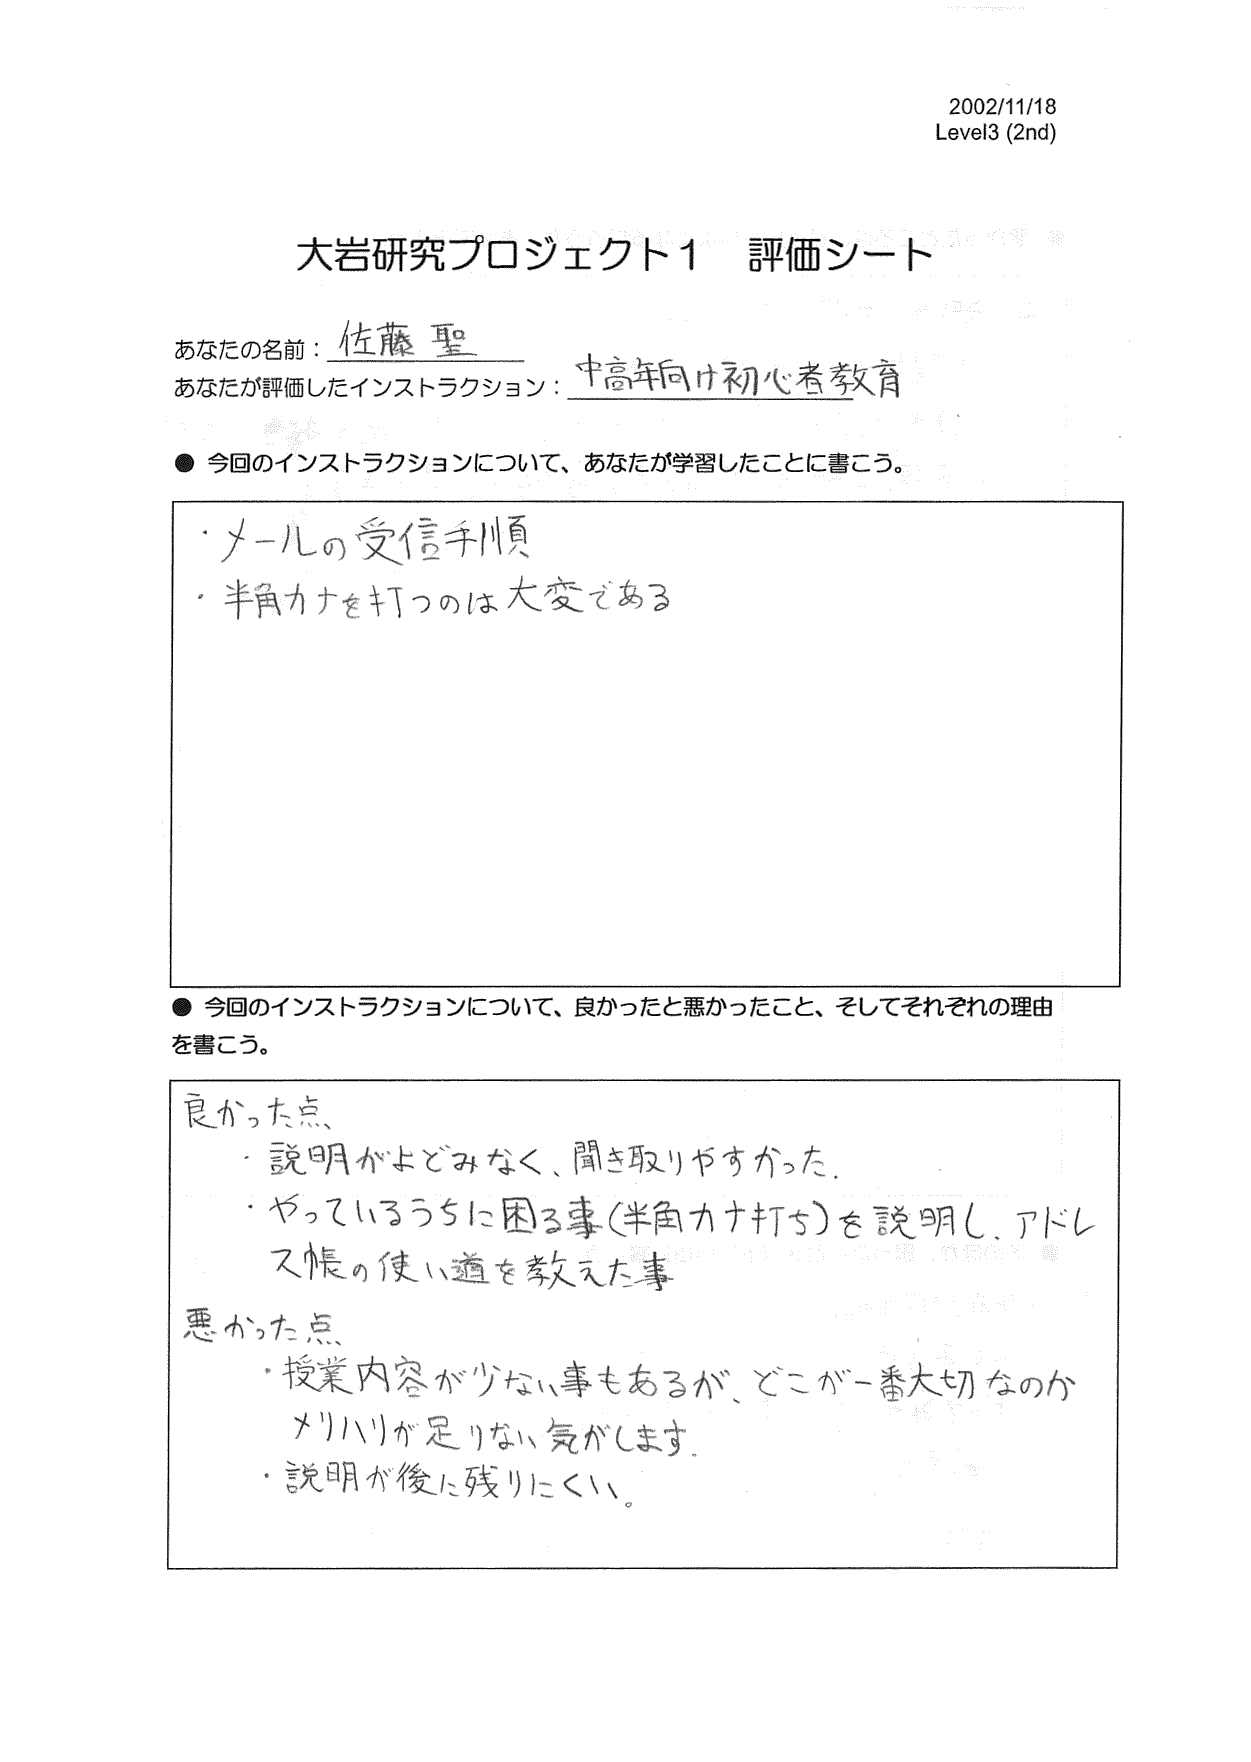 2002/11/18
Level3 (2nd)
大岩研究プロジェクト1　評価シート
あなたの名前：佐藤 聖
あなたが評価したインストラクション：中高年向け初心者教育
● 今回のインストラクションについて、あなたが学習したことに書こう。
・メールの受信手順
・半角カナを打つのは大変である
● 今回のインストラクションについて、良かったと悪かったこと、そしてそれぞれの理由
を書こう。
良かった点、
・説明がよどみなく、聞き取りやすかった.
・やっているうちに困る事(半角カナ打ち)を説明し、アドレ
ス帳の使い道を教えた事
悪かった点、
・授業内容が少ない事もあるが、どこが一番大切なのか
メリハリが足りない気がします.
・説明が後に残りにくい。